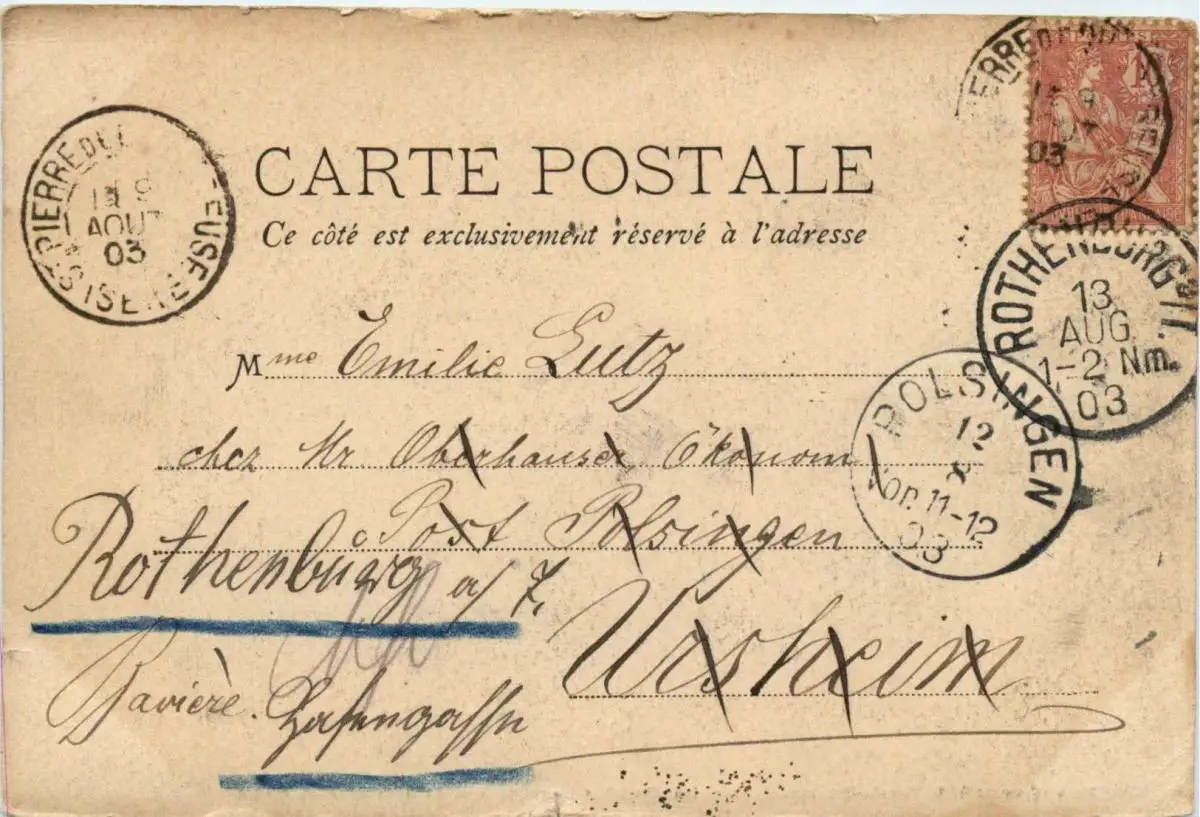 CARTE POSTALE
Ce côté est exclusivement réservé à l'adresse
ST PIERRE DE
EUSE
ISERE
AOUT
03
ERRE DE
03
ROTHENBURG
13.
AUG.
1-2 Nm.
03
POLSINGEN
12
8
Vor. 11-12
03
Mme Emilie Lutz
chez Mr. Oberhauser, Ökonom
Post Polsingen
Rothenburg a/T.
Ursheim
Bavière.